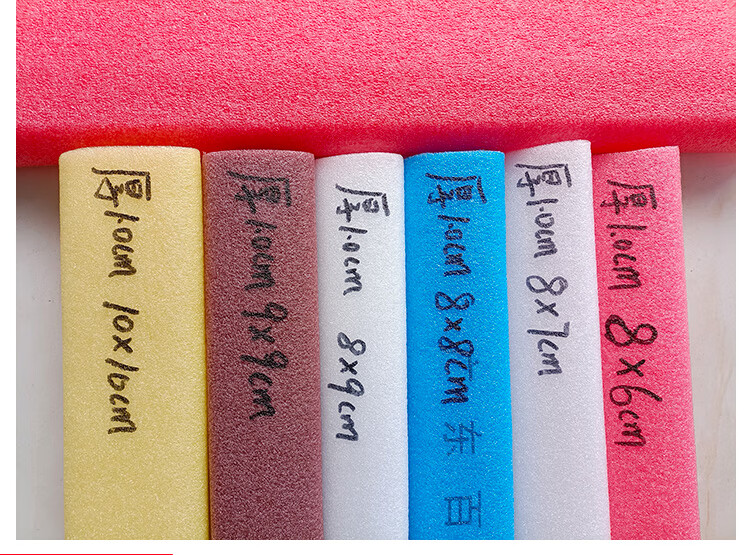 厚1.0cm 10x10cm
厚1.0cm 9x9cm
厚1.0cm 8x9cm
厚1.0cm 8x8cm 东百
厚1.0cm 8x7cm
厚1.0cm 8x6cm